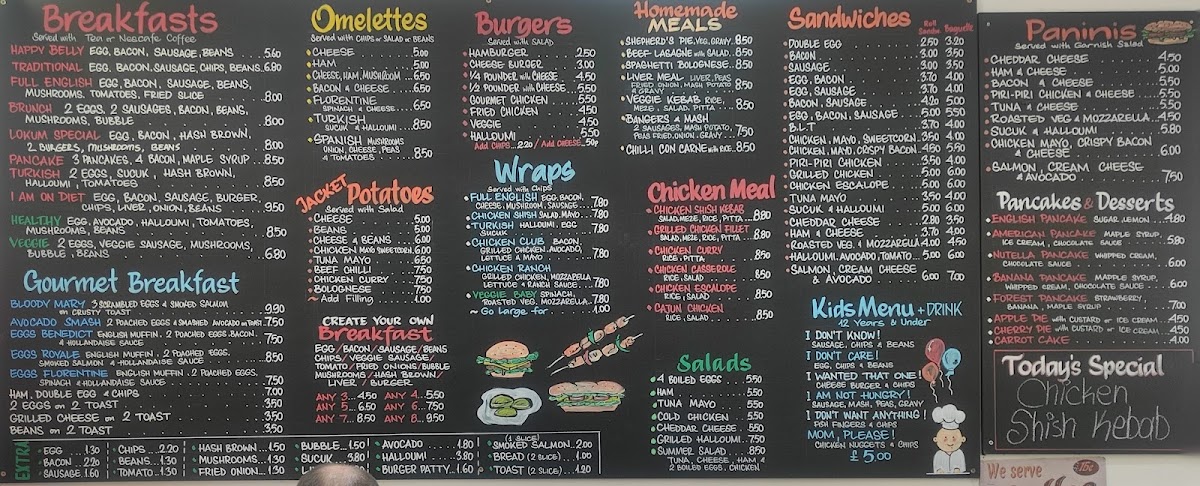 Breakfasts
Served with Tea or Nescafe Coffee
HAPPY BELLY EGG, BACON, SAUSAGE, BEANS 5.60
TRADITIONAL EGG, BACON, SAUSAGE, CHIPS, BEANS 6.80
FULL ENGLISH EGG, BACON, SAUSAGE, BEANS,
MUSHROOMS, TOMATOES, FRIED SLICE 8.00
BRUNCH 2 EGGS, 2 SAUSAGES, BACON, BEANS,
MUSHROOMS, BUBBLE 8.00
LOKUM SPECIAL EGG, BACON, HASH BROWN,
2 BURGERS, MUSHROOMS, BEANS 8.00
PANCAKE 3 PANCAKES, 4 BACON, MAPLE SYRUP 8.50
TURKISH 2 EGGS, SUCUK, HASH BROWN,
HALLOUMI, TOMATOES 8.50
I AM ON DIET EGG, BACON, SAUSAGE, BURGER,
CHIPS, LIVER, ONION, BEANS 9.50
HEALTHY EGG, AVOCADO, HALLOUMI, TOMATOES,
MUSHROOMS, BEANS 8.50
VEGGIE 2 EGGS, VEGGIE SAUSAGE, MUSHROOMS,
BUBBLE, BEANS 6.80
Gourmet Breakfast
BLOODY MARY 3 SCRAMBLED EGGS & SMOKED SALMON
ON CRUSTY TOAST 9.90
AVOCADO SMASH 2 POACHED EGGS & SMASHED AVOCADO ON TOAST 7.50
EGGS BENEDICT ENGLISH MUFFIN, 2 POACHED EGGS, BACON,
& HOLLANDAISE SAUCE 7.50
EGGS ROYALE ENGLISH MUFFIN, 2 POACHED EGGS,
SMOKED SALMON & HOLLANDAISE SAUCE 8.50
EGGS FLORENTINE ENGLISH MUFFIN, 2 POACHED EGGS,
SPINACH & HOLLANDAISE SAUCE 7.50
HAM, DOUBLE EGG & CHIPS 7.00
2 EGGS on 2 TOAST 3.50
GRILLED CHEESE on 2 TOAST 3.50
BEANS on 2 TOAST 3.50
Omelettes
Served with CHIPS or SALAD or BEANS
CHEESE 5.00
HAM 5.00
CHEESE, HAM, MUSHROOM 6.50
BACON & CHEESE 6.50
FLORENTINE
SPINACH & CHEESE 6.50
TURKISH
SUCUK & HALLOUMI 8.50
SPANISH MUSHROOMS
ONION, CHEESE, PEAS
& TOMATOES 8.50
JACKET Potatoes
Served with Salad
CHEESE 5.00
BEANS 5.00
CHEESE & BEANS 6.00
CHICKEN MAYO SWEETCORN 6.50
TUNA MAYO 6.50
BEEF CHILLI 7.50
CHICKEN CURRY 7.50
BOLOGNESE 7.50
~ Add Filling 1.00
CREATE YOUR OWN
Breakfast
EGG/BACON/SAUSAGE/BEANS
CHIPS/VEGGIE SAUSAGE/
TOMATO/FRIED ONIONS/BUBBLE
MUSHROOMS/HASH BROWN/
LIVER/BURGER
ANY 3 4.50 ANY 4 5.50
ANY 5 6.50 ANY 6 7.50
ANY 7 8.50 ANY 8 9.50
Burgers
Served with SALAD
HAMBURGER 2.50
CHEESE BURGER 3.00
1/4 POUNDER with CHEESE 4.50
1/2 POUNDER with CHEESE 5.50
GOURMET CHICKEN 5.50
FRIED CHICKEN 4.50
VEGGIE 4.50
HALLOUMI 5.50
Add CHIPS 2.20 / Add CHEESE 50p
Wraps
Served with Chips
FULL ENGLISH EGG, BACON,
CHEESE, MUSHROOM, SAUSAGE 7.80
CHICKEN SHISH SALAD, MAYO 7.80
TURKISH HALLOUMI, EGG
SUCUK 7.80
CHICKEN CLUB BACON,
GRILLED CHICKEN, AVOCADO,
LETTUCE & MAYO 7.80
CHICKEN RANCH
GRILLED CHICKEN, MOZZARELLA
LETTUCE & RANCH SAUCE 7.80
VEGGIE BABY SPINACH,
ROASTED VEG, MOZZARELLA 7.80
~ Go Large for 1.00
Homemade
MEALS
SHEPHERD'S PIE, VEG, GRAVY 8.50
BEEF LASAGNE with SALAD 8.50
SPAGHETTI BOLOGNESE 8.50
LIVER MEAL LIVER, PEAS
FRIED ONION, MASH POTATO
& GRAVY 8.50
VEGGIE KEBAB RICE,
MEZE, SALAD, PITTA 8.50
BANGERS & MASH
2 SAUSAGES, MASH POTATO,
PEAS FRIED ONION, GRAVY 7.50
CHILLI CON CARNE with RICE 8.50
Chicken Meal
CHICKEN SHISH KEBAB
SALAD, MEZE, RICE, PITTA 8.80
GRILLED CHICKEN FILLET
SALAD, MEZE, RICE, PITTA 8.80
CHICKEN CURRY
RICE, PITTA 8.50
CHICKEN CASSEROLE
RICE, SALAD 8.50
CHICKEN ESCALOPE
RICE, SALAD 8.50
CAJUN CHICKEN
RICE, SALAD 8.50
Salads
4 BOILED EGGS 5.50
HAM 5.50
TUNA MAYO 5.50
COLD CHICKEN 5.50
CHEDDAR CHEESE 5.50
GRILLED HALLOUMI 7.50
SUMMER SALAD 8.50
TUNA, CHEESE, HAM &
2 BOILED EGGS, CHICKEN
Sandwiches
Roll Sandw Baguette
DOUBLE EGG 2.50 3.20
BACON 3.00 3.50
SAUSAGE 3.00 3.50
EGG, BACON 3.70 4.00
EGG, SAUSAGE 3.70 4.00
BACON, SAUSAGE 4.20 5.00
EGG, BACON, SAUSAGE 5.00 5.50
B.L.T 3.70 4.00
CHICKEN, MAYO, SWEETCORN 3.50 4.00
CHICKEN, MAYO, CRISPY BACON 4.80 5.50
PIRI-PIRI CHICKEN 3.50 4.00
GRILLED CHICKEN 5.00 6.00
CHICKEN ESCALOPE 5.00 6.00
TUNA MAYO 3.50 4.00
SUCUK & HALLOUMI 5.00 6.00
CHEDDAR CHEESE 2.80 3.50
HAM & CHEESE 3.70 4.00
ROASTED VEG. & MOZZARELLA 4.00 4.50
HALLOUMI, AVOCADO, TOMATO 5.00 6.00
SALMON, CREAM CHEESE
& AVOCADO 6.00 7.00
Kids Menu + DRINK
12 Years & Under
I DON'T KNOW!
SAUSAGE, CHIPS & BEANS
I DON'T CARE!
EGG, CHIPS & BEANS
I WANTED THAT ONE!
CHEESE BURGER & CHIPS
I AM NOT HUNGRY!
SAUSAGE, MASH, PEAS, GRAVY
I DON'T WANT ANYTHING!
FISH FINGERS & CHIPS
MOM, PLEASE!
CHICKEN NUGGETS & CHIPS
£5.00
Paninis
Served with Garnish Salad
CHEDDAR CHEESE 4.50
HAM & CHEESE 5.00
BACON & CHEESE 5.50
PIRI-PIRI CHICKEN & CHEESE 5.50
TUNA & CHEESE 5.50
ROASTED VEG & MOZZARELLA 4.50
SUCUK & HALLOUMI 5.80
CHICKEN MAYO, CRISPY BACON
& CHEESE 6.00
SALMON, CREAM CHEESE
& AVOCADO 7.50
Pancakes & Desserts
ENGLISH PANCAKE SUGAR, LEMON 4.80
AMERICAN PANCAKE MAPLE SYRUP,
ICE CREAM, CHOCOLATE SAUCE 5.80
NUTELLA PANCAKE WHIPPED CREAM,
CHOCOLATE SAUCE 6.00
BANANA PANCAKE MAPPLE SYRUP,
WHIPPED CREAM, CHOCOLATE SAUCE 6.00
FOREST PANCAKE STRAWBERRY,
BANANA, MAPLE SYRUP 7.00
APPLE PIE with CUSTARD or ICE CREAM 4.50
CHERRY PIE with CUSTARD or ICE CREAM 4.50
CARROT CAKE 4.00
Today's Special
Chicken
Shish Kebab
EXTRA
EGG 1.30
BACON 2.20
SAUSAGE 1.60
CHIPS 2.20
BEANS 1.30
TOMATO 1.30
HASH BROWN 1.50
MUSHROOMS 1.30
FRIED ONION 1.30
BUBBLE 1.50
SUCUK 3.80
AVOCADO 1.80
HALLOUMI 3.80
BURGER PATTY 1.60
(1 SLICE)
SMOKED SALMON 2.00
BREAD (2 SLICE) 1.00
TOAST (2 SLICE) 1.20
We serve